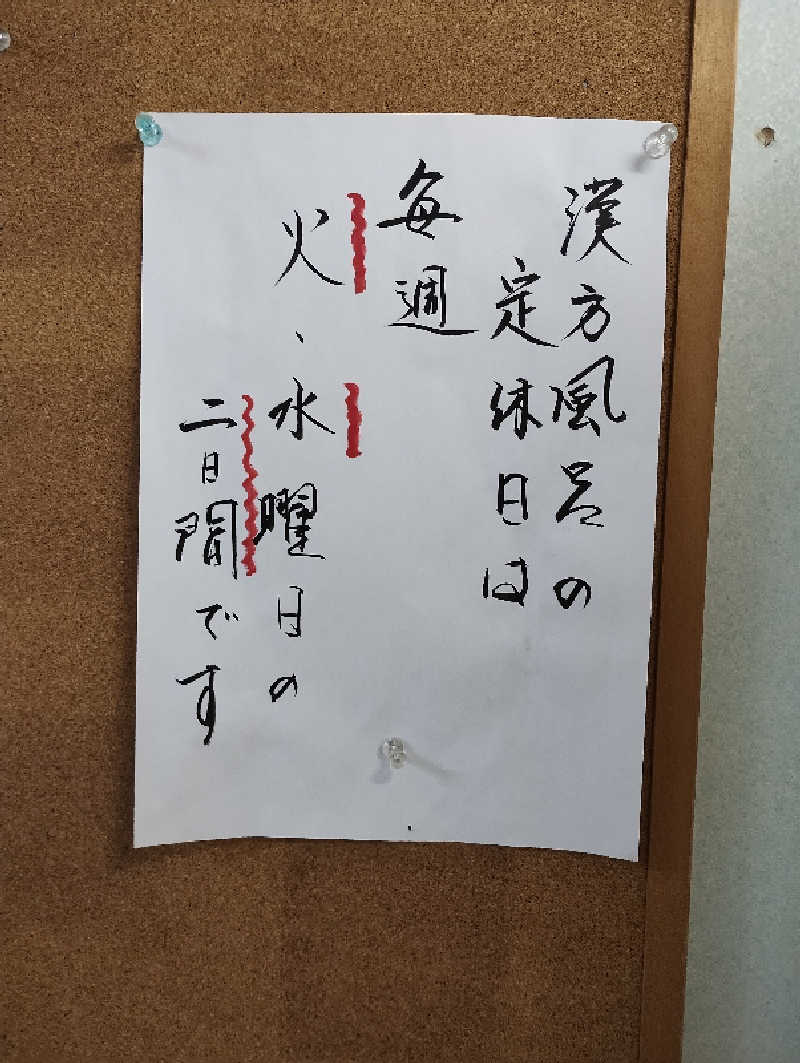 漢方風呂の
定休日は
毎週
火、水曜日の
二日間です